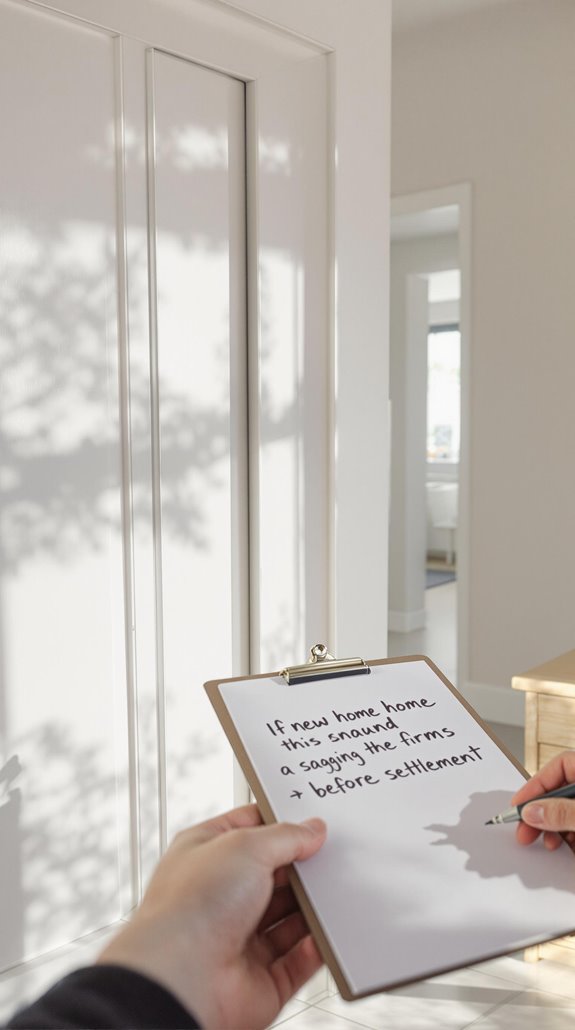 If new home home
this snaund
a sagging the firms
+ before settlement